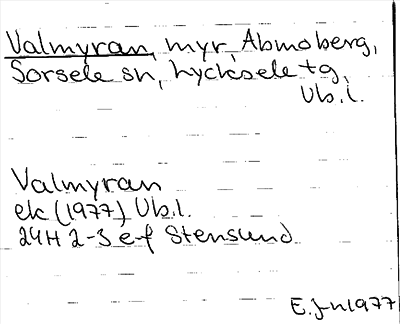 Valmyran, myr, Abmoberg,
Sorsele sn, Lycksele tg,
Vb.l.
Valmyran
ek (1977) Vb.l.
24H 2-3 e-f Stensund
E. J-n 1977